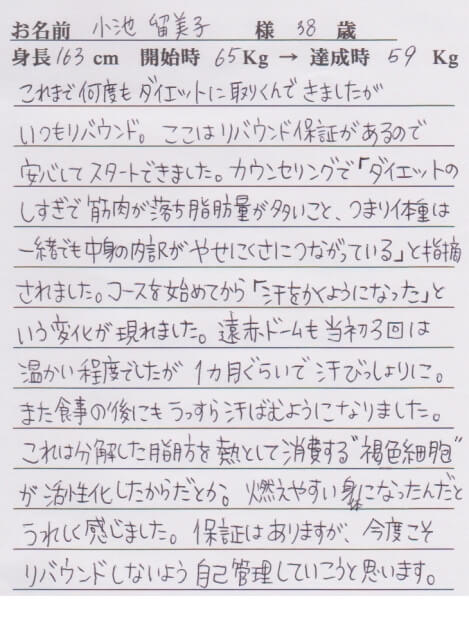 お名前 小池 留美子 様 38 歳
身長163cm 開始時 65Kg → 達成時 59 Kg
これまで何度もダイエットに取りくんできましたが
いつもリバウンド。ここはリバウンド保証があるので
安心してスタートできました。カウンセリングで「ダイエットの
しすぎで筋肉が落ち脂肪量が多いこと、つまり体重は
一緒でも中身の内訳がやせにくさにつながっている」と指摘
されました。コースを始めてから「汗をかくようになった」と
いう変化が現れました。遠赤ドームも当初3回は
温かい程度でしたが1カ月ぐらいで汗びっしょりに。
また食事の後にもうっすら汗ばむようになりました。
これは分解した脂肪を熱として消費する"褐色細胞"
が活性化したからだとか。燃えやすい身体になったんだと
うれしく感じました。保証はありますが、今度こそ
リバウンドしないよう自己管理していこうと思います。